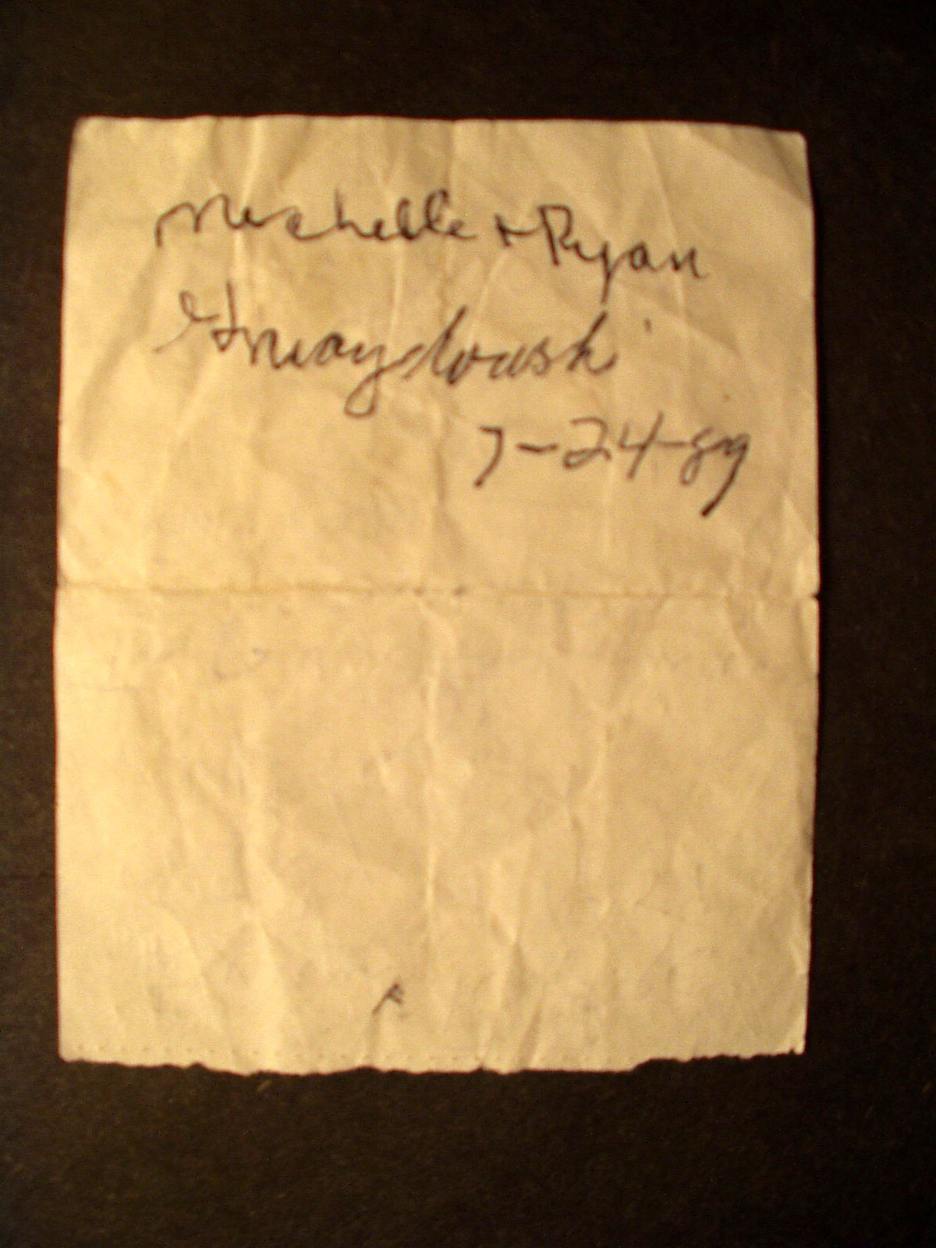 Michelle + Ryan
Gmaydowski
7-24-89